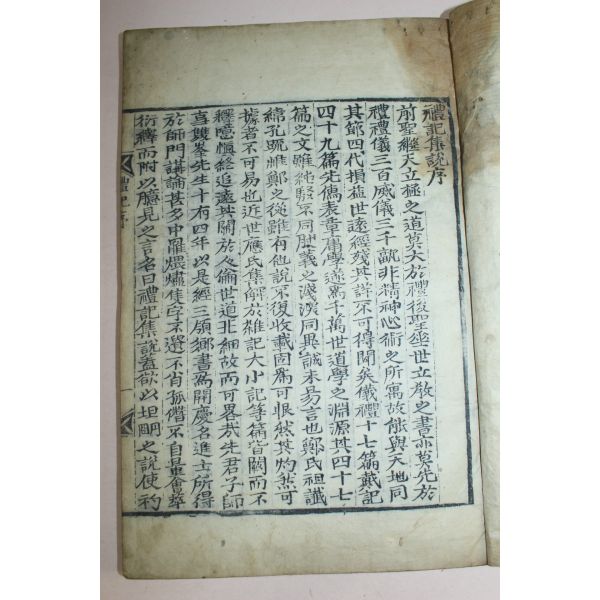 禮記集說序
前聖繼天立極之道莫大於禮後聖垂世立敎之書亦莫先於
禮禮儀三百威儀三千孰非精神心術之所寓故能與天地同
其節四代損益世遠經殘其詳不可得聞矣儀禮十七篇戴記
四十九篇先儒表章庸學遂爲千萬世道學之淵源其四十七
篇之文雖純駁不同然義之淺深同異誠未易言也鄭氏祖讖
緯孔疏惟鄭之從雖有他說不復收載固爲可恨然其灼然可
據者不可易也近世應氏集解於雜記大小記等篇皆闕而不
釋噫愼終追遠其關於人倫世道非細故而可畧哉先君子師
事雙峯先生十有四年以是經三領鄕書爲開慶名進士所得
於師門講論甚多中罹煨燼隻字不遺不肖孤僭不自量會萃
衍繹而附以臆見之言名曰禮記集說蓋欲以坦明之說使初
禮記序